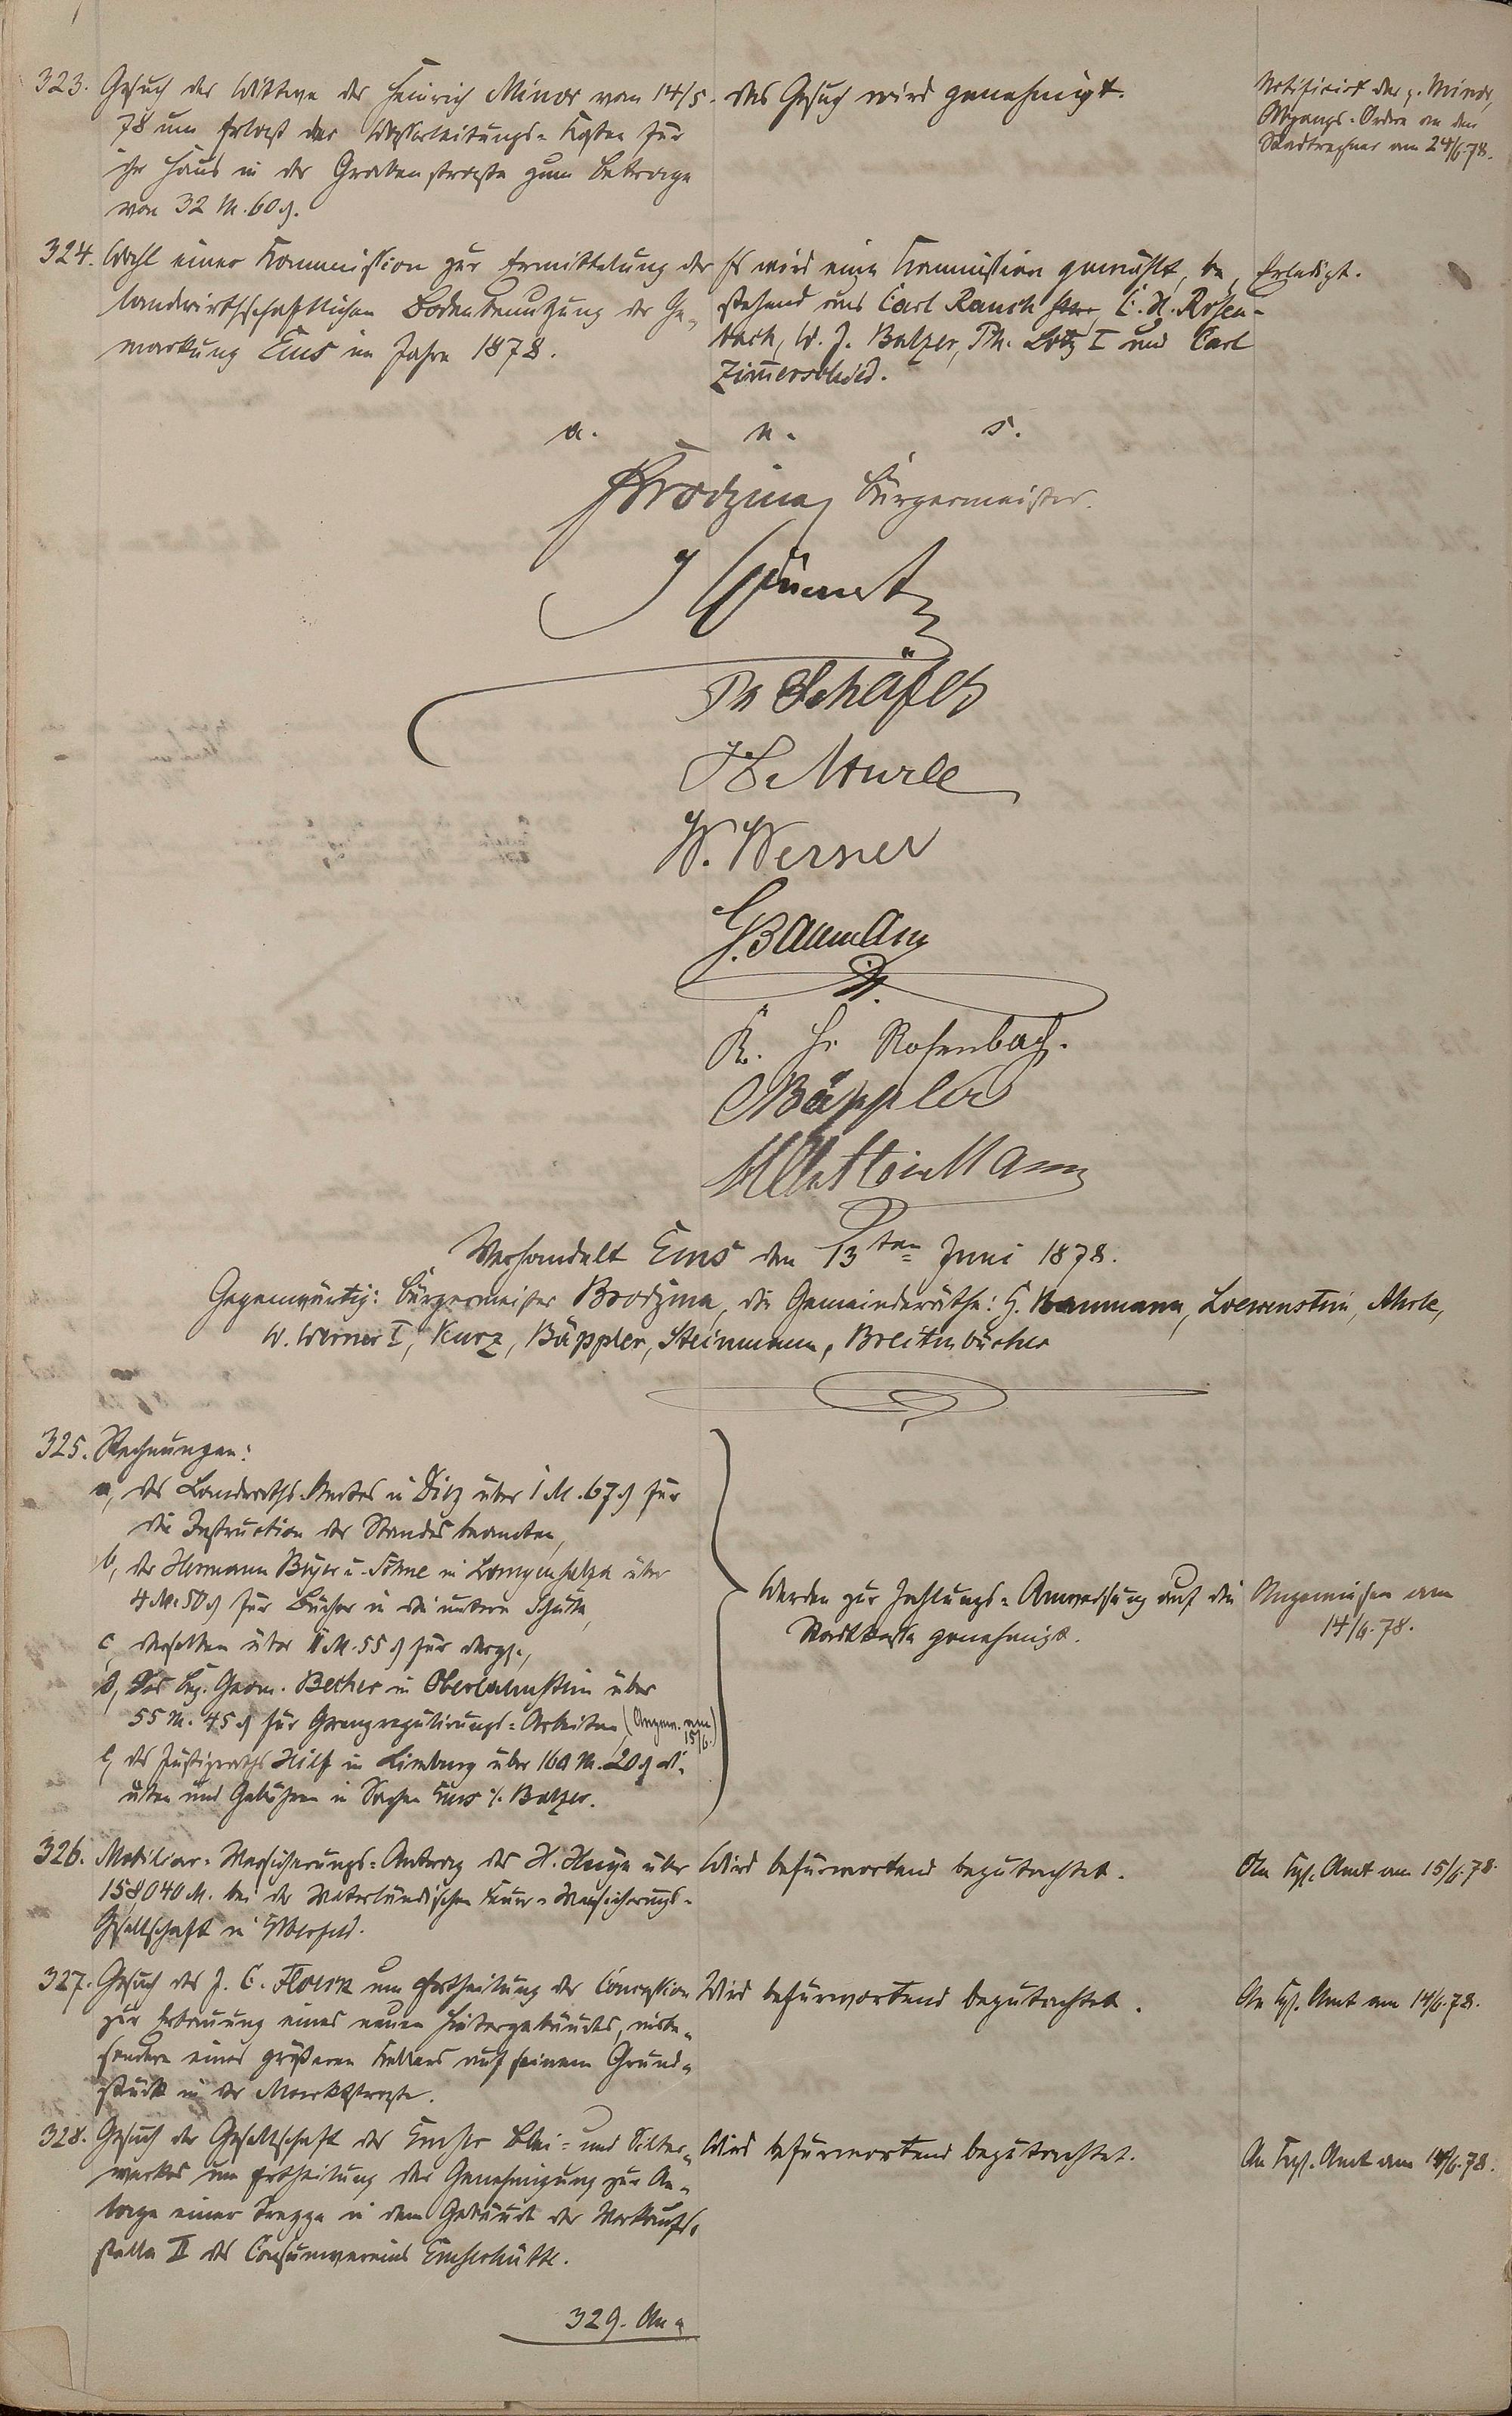 323. Gesuch der Wittwe des Heinrich Minor vom 14/5.
78 um Erlaß der Wasserleitungs-Kosten für
ihr Haus in der Grabenstraße zum Betrage
von 32 M. 60 ₰.
Das Gesuch wird genehmigt.
Notificirt der p. Minor,
Abgangs-Ordre an den
Stadtrechner am 24/6.78.
324. Wahl einer Kommission zur Ermittelung der
landwirthschaftlichen Bodenbenutzung der Ge-
markung Ems im Jahre 1878.
Es wird eine Kommission gewählt, be-
stehend aus Carl Rauch, C. H. Rosen-
bach, W. J. Balzer, Ph. Lotz I und Carl
Zimmerschied.
Erledigt.
a. u. s.
Brodzina Bürgermeister.
Ph Schäfer
W. Werner
G. Baumann
K. H. Rosenbach.
Bäppler
Steinmann
Verhandelt Ems den 13ten Juni 1878.
Gegenwärtig: Bürgermeister Brodzina, die Gemeinderäthe: G. Baumann, Loewenstein, Ahrle,
W. Werner I, Kurz, Bäppler, Steinmann, Breitenbücher
325. Rechnungen:
a, des Landraths-Amtes in Diez über 1 M. 67 ₰ für
die Instruction der Standesbeamten,
b, der Hermann Beyer u. Söhne in Langensalza über
4 M. 50 ₰ für Bücher in die untere Schule,
c, derselben über M. 55 ₰ für dergl.,
d, des Kgl. Geom. Becker in Oberlahnstein über
55 M. 45 ₰ für Grenzregulirungs-Arbeiten, (Angew. am 15/6.)
e, des Justizraths Hilf in Limburg über 160 M. 20 ₰ Di-
äten und Gebühren in Sachen Ems ./. Balzer.
Werden zur Zahlungs-Anweisung auf die
Stadtkasse genehmigt.
Angewiesen am
14/6.78.
326. Mobiliar-Versicherungs-Antrag des H. über
158040 M. bei der Vaterländischen Feuer-Versicherungs-
Gesellschaft in Elberfeld.
Wird befürwortend begutachtet.
An Kgl. Amt am 15/6.78.
327. Gesuch des J. C. Flöck um Ertheilung der Concession
zur Erbauung eines neuen Hintergebäudes, insbe-
sondere eines größeren Kellers auf seinem Grund-
stück in der Marktstraße.
Wird befürwortend begutachtet.
An Kgl. Amt am 14/6.78.
328. Gesuch der Gesellschaft des Emser Blei- und Silber-
werkes um Ertheilung der Genehmigung zur An-
lage einer Treppe in dem Gebäude der Verkaufs-
stelle II des Consumvereins Emserhütte.
Wird befürwortend begutachtet.
An Kgl. Amt am 14/6.78.
329. An-